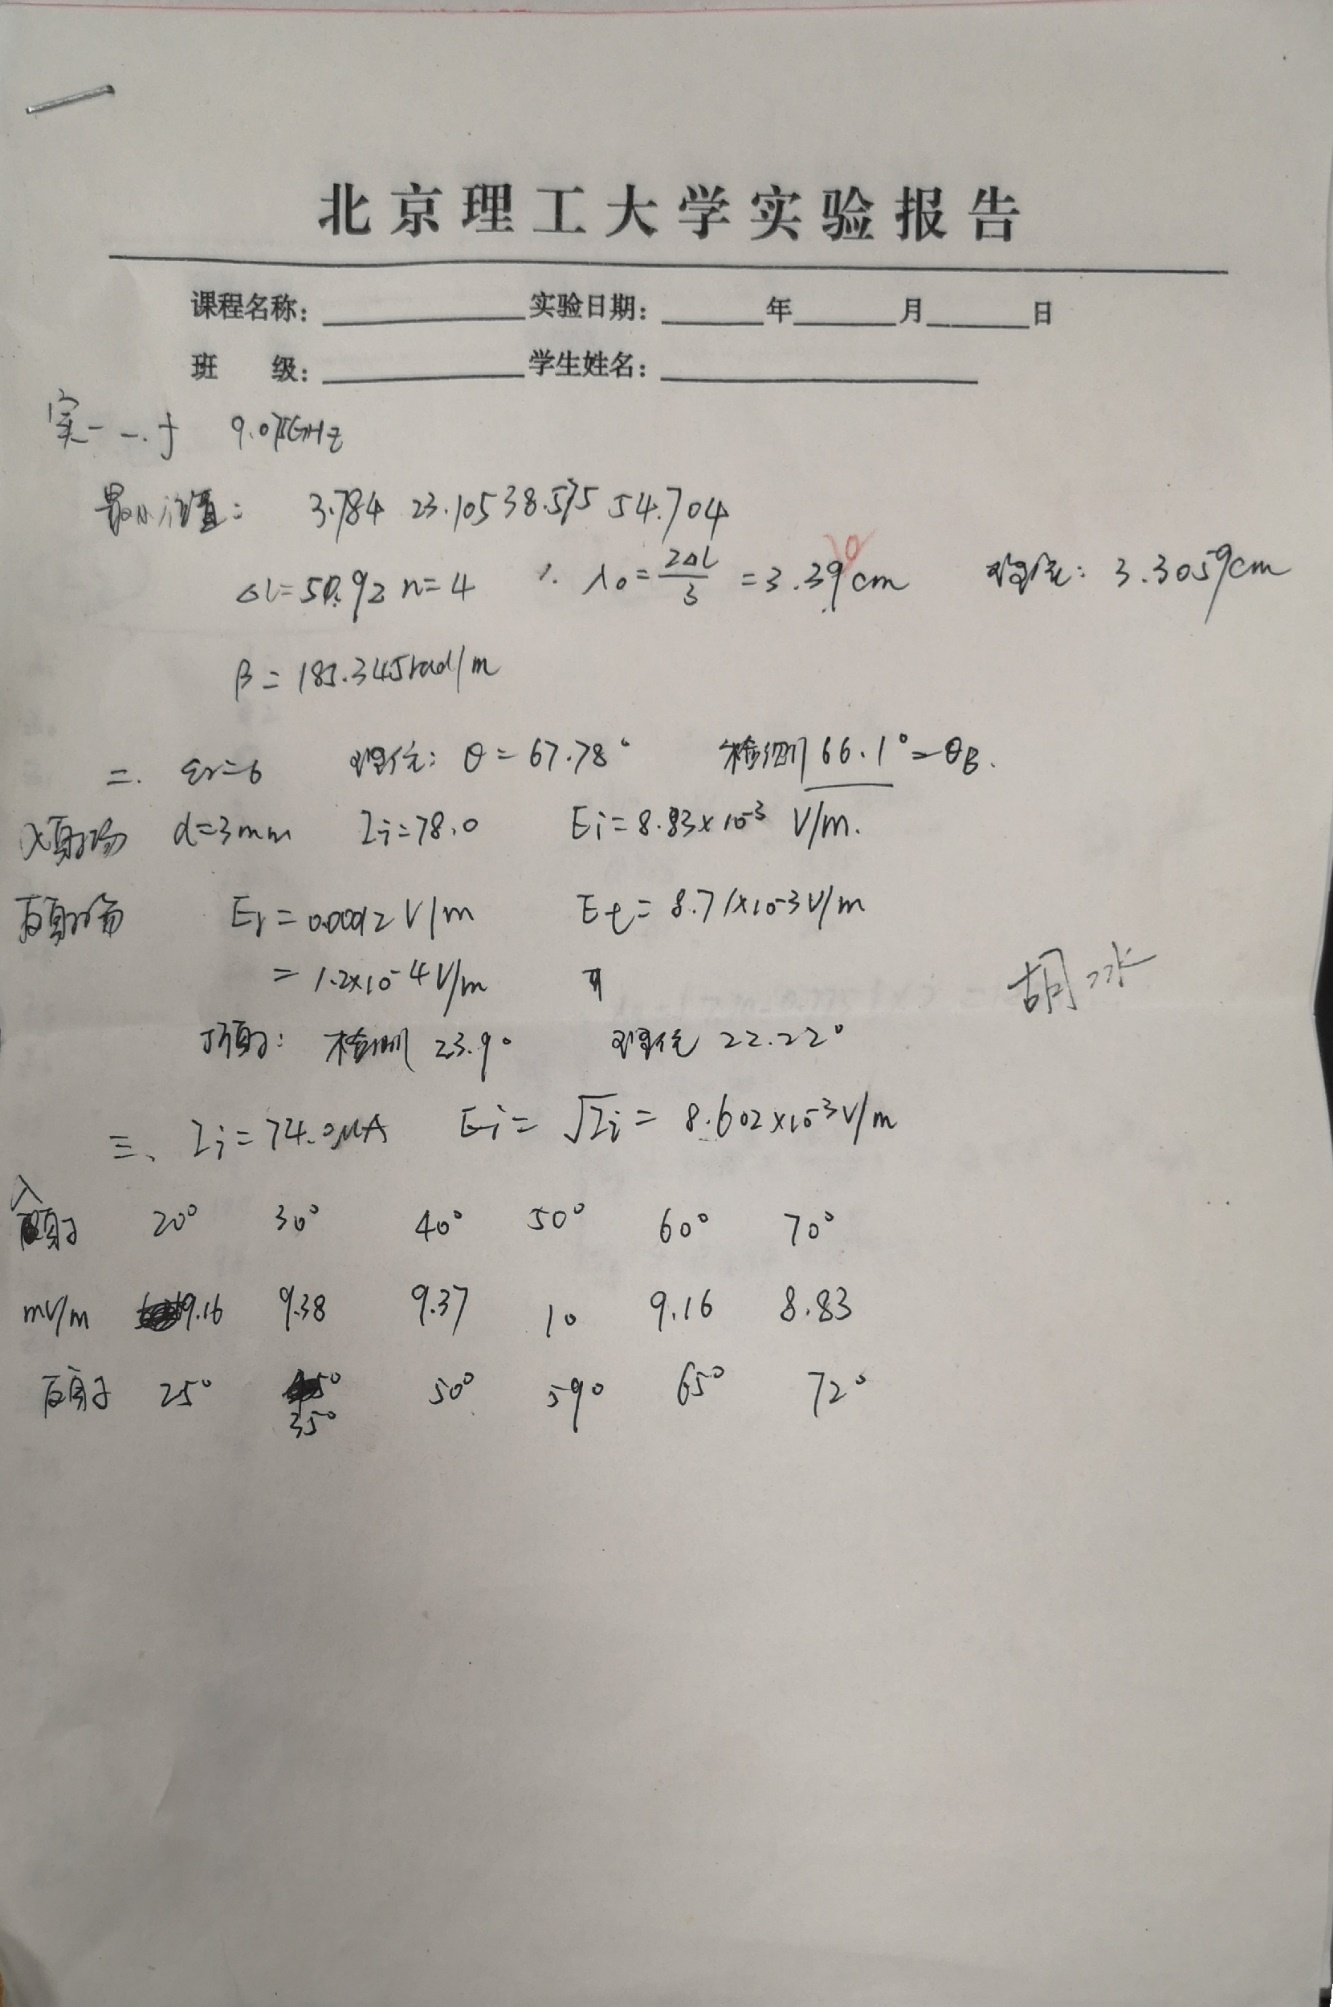 北京理工大学实验报告
课程名称: 实验日期: 年 月 日
班 级: 学生姓名:
实一 一.f 9.075GHz
最小位置: 3.784 23.105 38.575 54.704
ΔL=50.92 n=4 ∴ λ₀=2ΔL/3=3.39cm 理论: 3.3059cm
β=185.345rad/m
二. εr=6 理论: θ=67.78° 检测 66.1°=θB.
入射场 d=3mm Ii=78.0 Ei=8.83×10-3 V/m.
反射场 Er=0.0012V/m Et=8.71×10-3V/m
=1.2×10-4V/m
折射: 检测 23.9° 理论 22.22°
胡冰
三、Ii=74.0μA Ei=√Ii=8.602×10-3V/m
入射 20° 30° 40° 50° 60° 70°
mV/m 9.16 9.38 9.37 10 9.16 8.83
反射 25° 35° 50° 59° 65° 72°